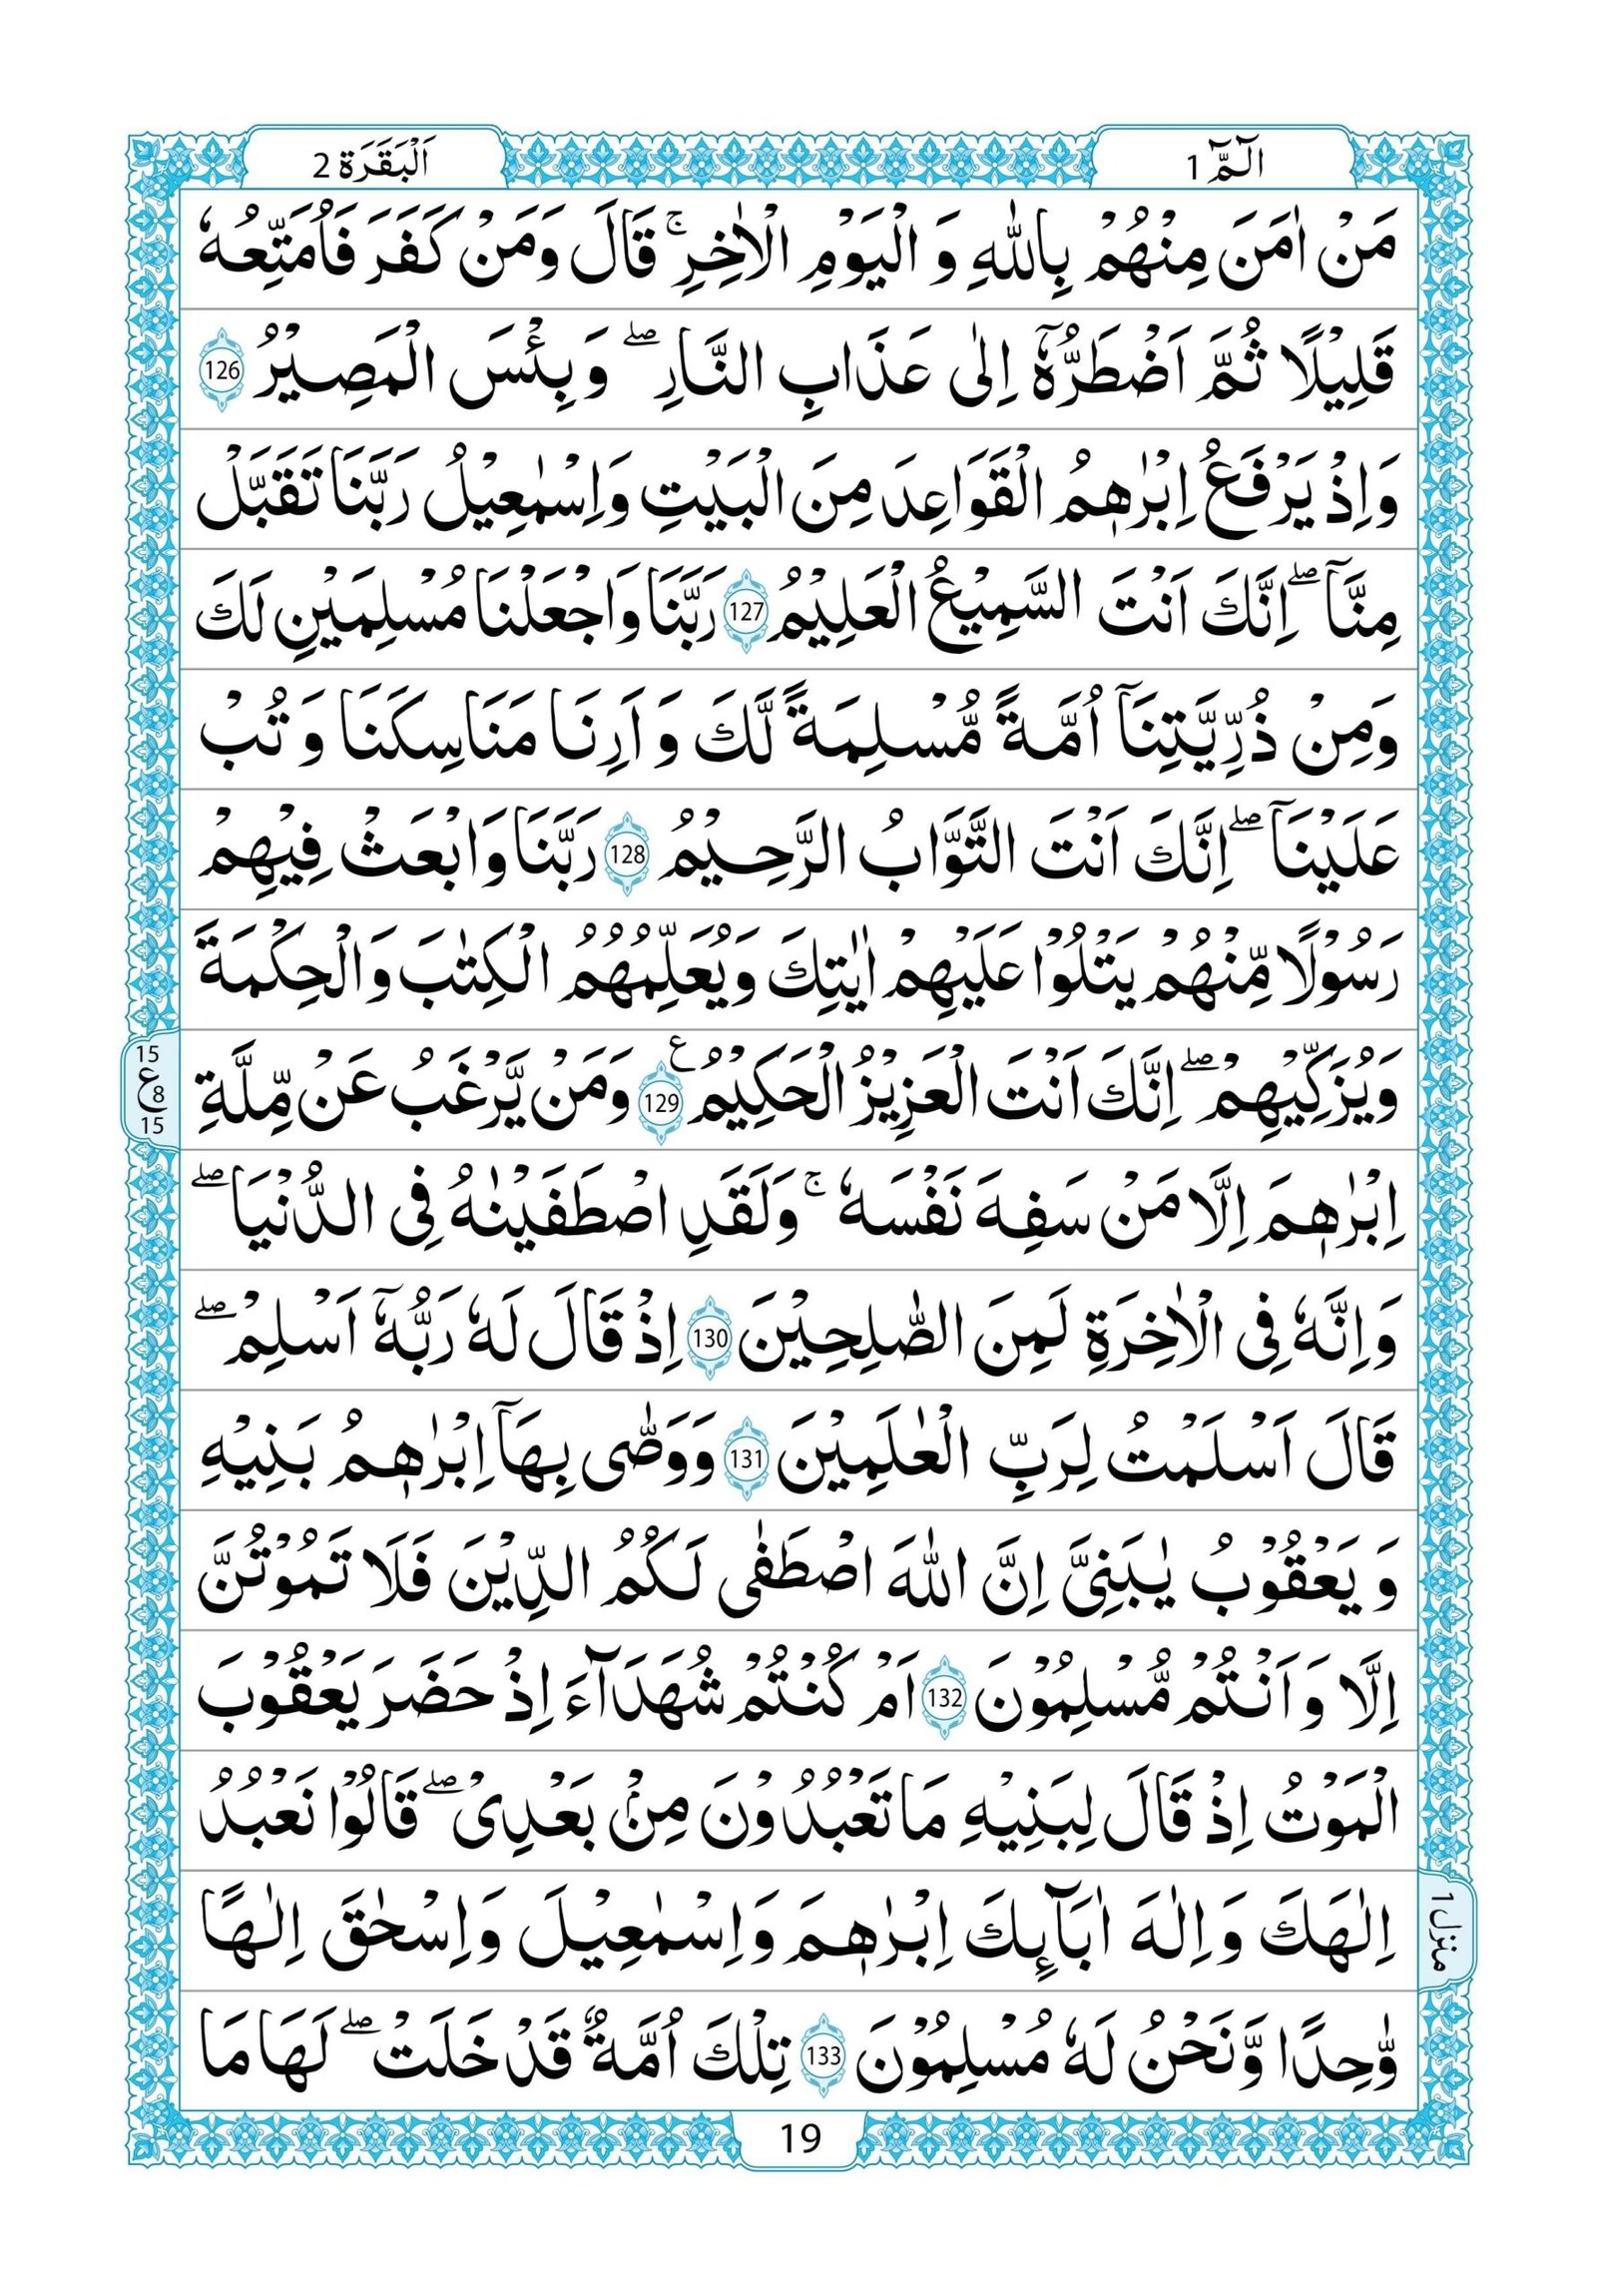 الٓمّٓ 1
اَلْبَقَرَة 2
مَنْ اٰمَنَ مِنْهُمْ بِاللّٰهِ وَ الْيَوْمِ الْاٰخِرِ ۚ قَالَ وَمَنْ كَفَرَ فَاُمَتِّعُهٗ
قَلِيْلًا ثُمَّ اَضْطَرُّهٗۤ اِلٰى عَذَابِ النَّارِ ۖ وَ بِئْسَ الْمَصِيْرُ 126
وَاِذْ يَرْفَعُ اِبْرٰهٖمُ الْقَوَاعِدَ مِنَ الْبَيْتِ وَاِسْمٰعِيْلُ رَبَّنَا تَقَبَّلْ
مِنَّاۤ ۖ اِنَّكَ اَنْتَ السَّمِيْعُ الْعَلِيْمُ 127 رَبَّنَا وَاجْعَلْنَا مُسْلِمَيْنِ لَكَ
وَمِنْ ذُرِّيَّتِنَاۤ اُمَّةً مُّسْلِمَةً لَّكَ وَ اَرِنَا مَنَاسِكَنَا وَ تُبْ
عَلَيْنَاۤ ۖ اِنَّكَ اَنْتَ التَّوَّابُ الرَّحِيْمُ 128 رَبَّنَا وَابْعَثْ فِيْهِمْ
رَسُوْلًا مِّنْهُمْ يَتْلُوْا عَلَيْهِمْ اٰيٰتِكَ وَيُعَلِّمُهُمُ الْكِتٰبَ وَالْحِكْمَةَ
وَيُزَكِّيْهِمْ ۖ اِنَّكَ اَنْتَ الْعَزِيْزُ الْحَكِيْمُ ع 129 وَمَنْ يَّرْغَبُ عَنْ مِّلَّةِ
15
ع 8
15
اِبْرٰهٖمَ اِلَّا مَنْ سَفِهَ نَفْسَهٗ ۚ وَلَقَدِ اصْطَفَيْنٰهُ فِى الدُّنْيَا ۖ
وَاِنَّهٗ فِى الْاٰخِرَةِ لَمِنَ الصّٰلِحِيْنَ 130 اِذْ قَالَ لَهٗ رَبُّهٗۤ اَسْلِمْ ۖ
قَالَ اَسْلَمْتُ لِرَبِّ الْعٰلَمِيْنَ 131 وَوَصّٰى بِهَاۤ اِبْرٰهٖمُ بَنِيْهِ
وَ يَعْقُوْبُ يٰبَنِىَّ اِنَّ اللّٰهَ اصْطَفٰى لَكُمُ الدِّيْنَ فَلَا تَمُوْتُنَّ
اِلَّا وَ اَنْتُمْ مُّسْلِمُوْنَ 132 اَمْ كُنْتُمْ شُهَدَآءَ اِذْ حَضَرَ يَعْقُوْبَ
الْمَوْتُ اِذْ قَالَ لِبَنِيْهِ مَا تَعْبُدُوْنَ مِنْۢ بَعْدِىْ ۖ قَالُوْا نَعْبُدُ
اِلٰهَكَ وَ اِلٰهَ اٰبَآئِكَ اِبْرٰهٖمَ وَ اِسْمٰعِيْلَ وَ اِسْحٰقَ اِلٰهًا
منزل 1
وَّحِدًا وَّنَحْنُ لَهٗ مُسْلِمُوْنَ 133 تِلْكَ اُمَّةٌ قَدْ خَلَتْ ۖ لَهَا مَا
19